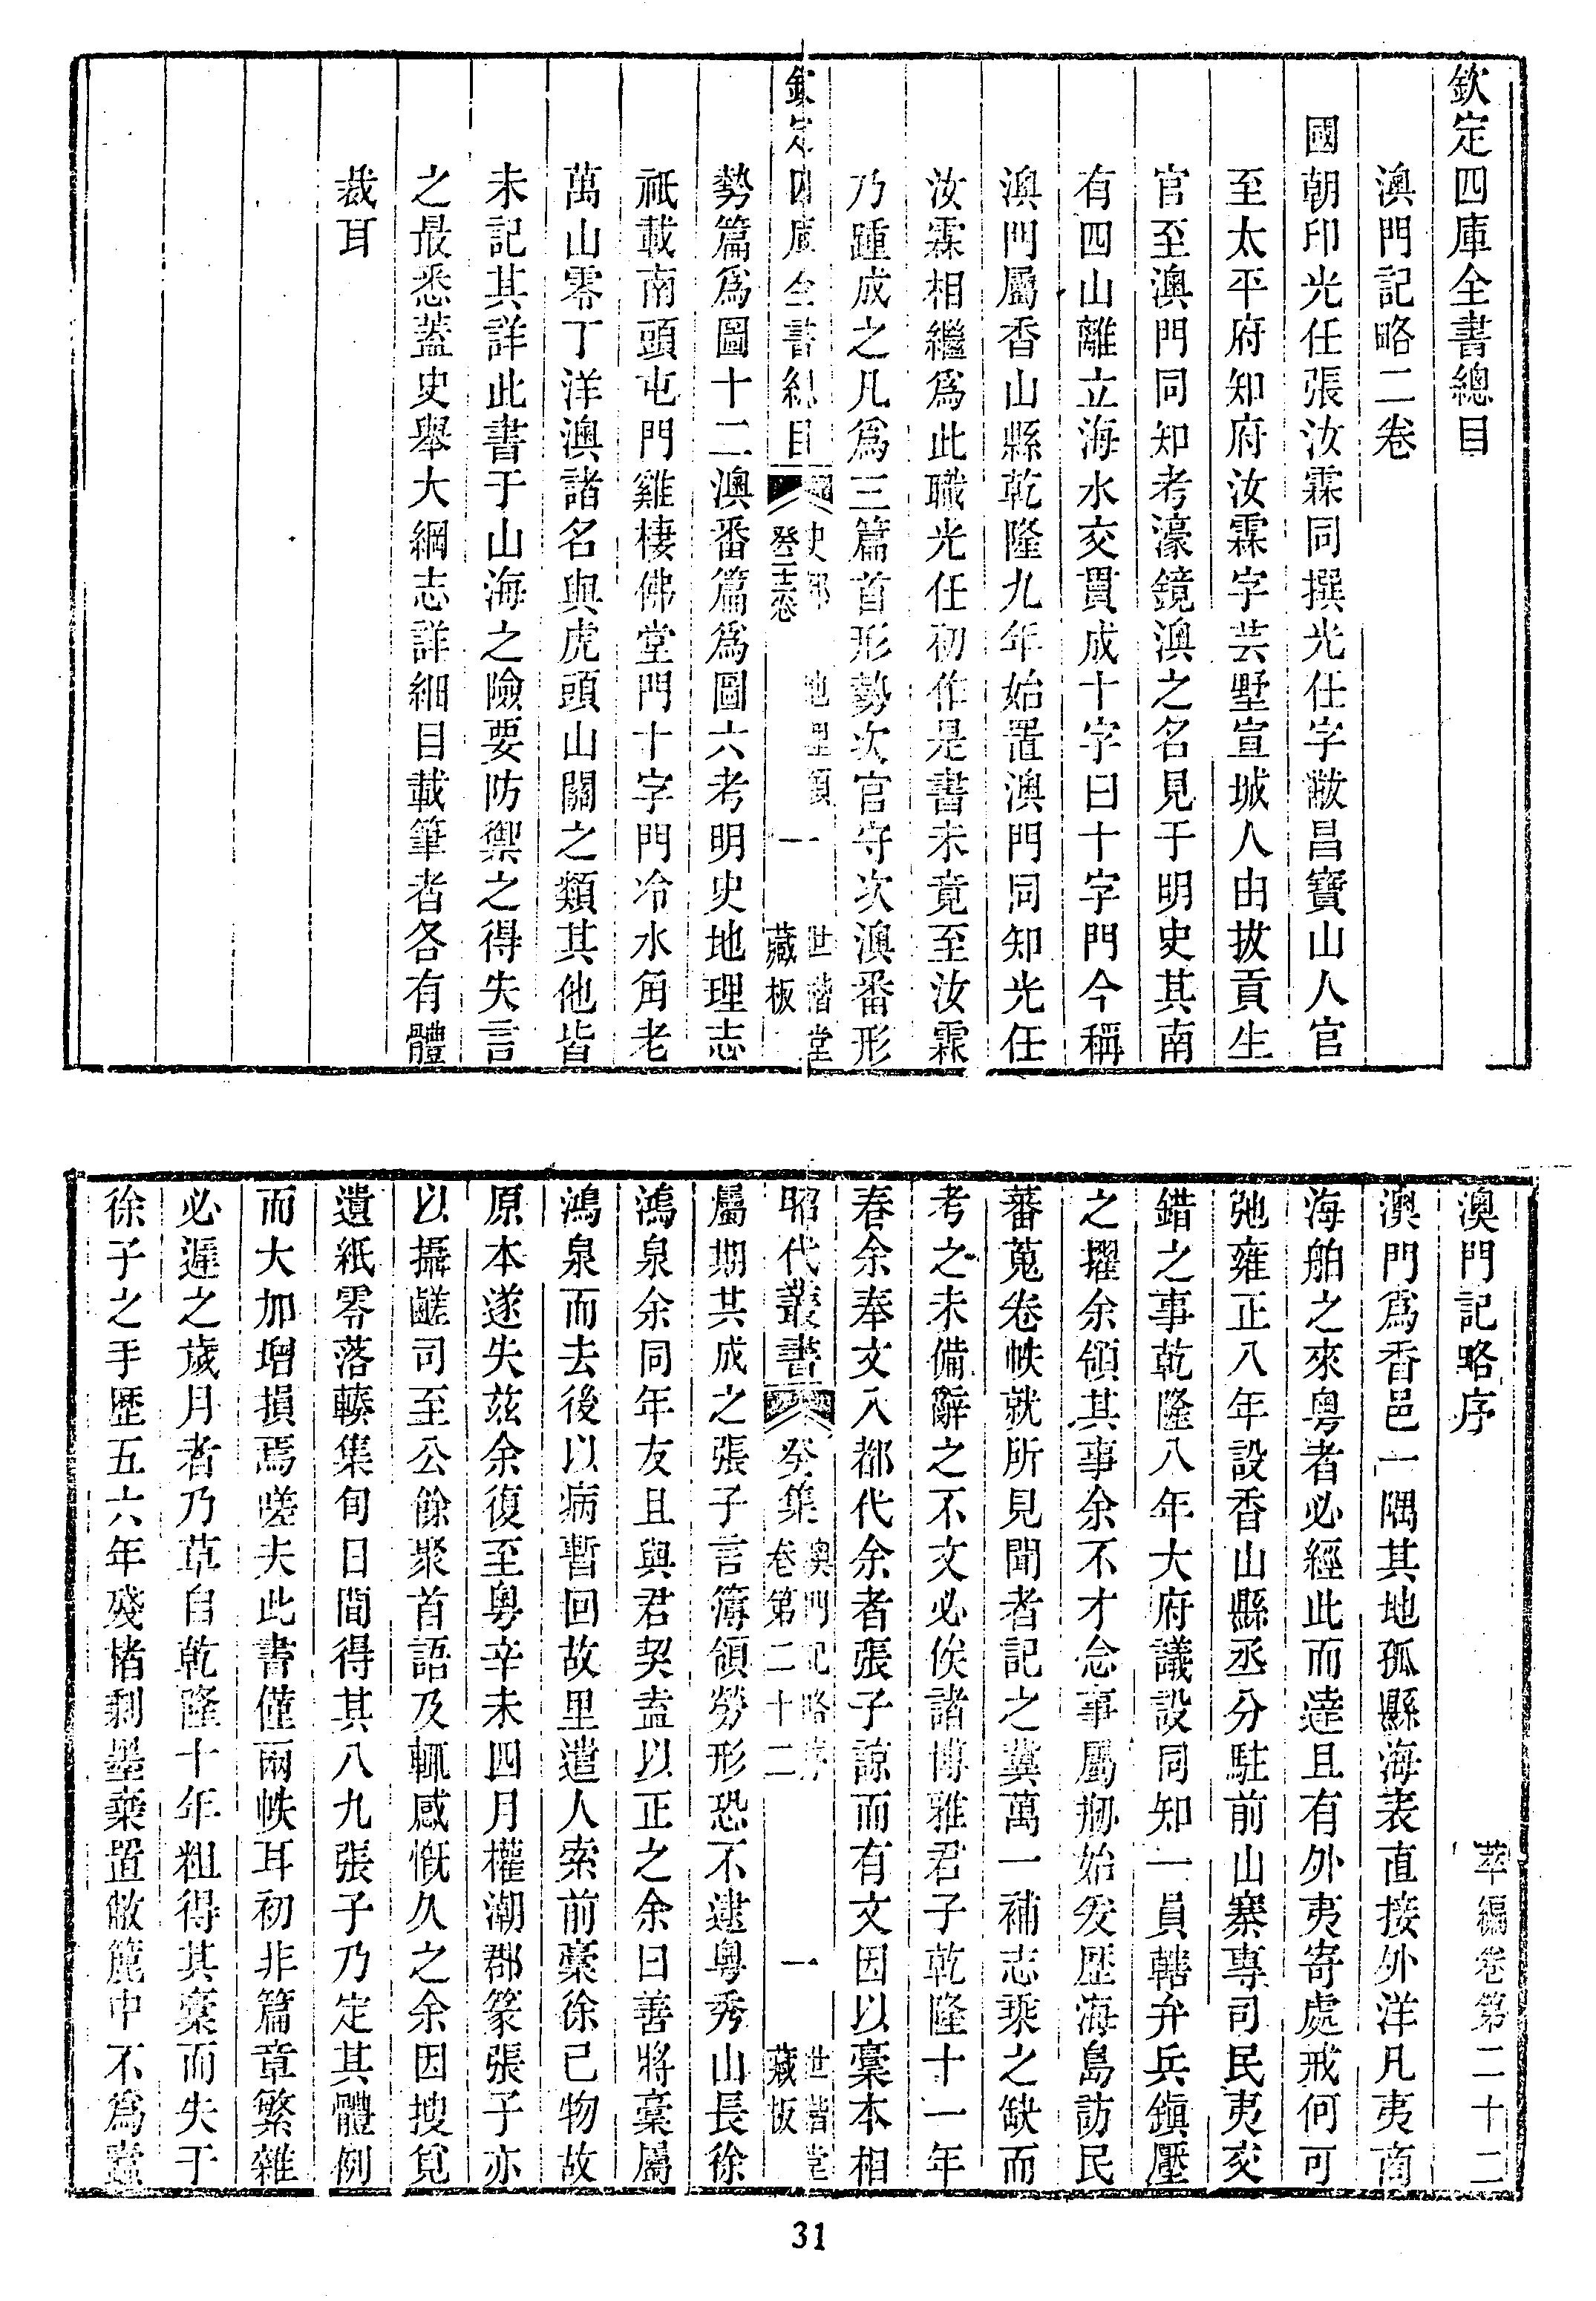 欽定四庫全書總目
澳門記略二卷
國朝印光任張汝霖同撰光任字黻昌寶山人官
至太平府知府汝霖字芸墅宣城人由拔貢生
官至澳門同知考濠鏡澳之名見于明史其南
有四山離立海水交貫成十字曰十字門今稱
澳門屬香山縣乾隆九年始置澳門同知光任
汝霖相繼爲此職光任初作是書未竟至汝霖
乃踵成之凡爲三篇首形勢次官守次澳番形
欽定四庫全書總目
史部 地理類 一 世楷堂
癸二十二卷 藏板
勢篇爲圖十二澳番篇爲圖六考明史地理志
祇載南頭屯門雞棲佛堂門十字門冷水角老
萬山零丁洋澳諸名與虎頭山關之類其他皆
未記其詳此書于山海之險要防禦之得失言
之最悉蓋史舉大綱志詳細目載筆者各有體
裁耳
澳門記略序 萃編卷第二十二
澳門爲香邑一隅其地孤縣海表直接外洋凡夷商
海舶之來粵者必經此而達且有外夷寄處戒何可
弛雍正八年設香山縣丞分駐前山寨專司民夷交
錯之事乾隆八年大府議設同知一員轄弁兵鎮壓
之擢余領其事余不才念事屬刱始爰歷海島訪民
蕃蒐卷帙就所見聞者記之冀萬一補志乘之缺而
考之未備辭之不文必俟諸博雅君子乾隆十一年
春余奉文入都代余者張子諒而有文因以稾本相
昭代叢書 癸集
澳門記略序 一 世楷堂
卷第二十二 藏板
屬期其成之張子言簿領勞形恐不逮粵秀山長徐
鴻泉余同年友且與君契盍以正之余曰善將稾屬
鴻泉而去後以病暫回故里遣人索前稾徐已物故
原本遂失茲余復至粵辛未四月權潮郡篆張子亦
以攝鹺司至公餘聚首語及輒感慨久之余因搜覓
遺紙零落輳集旬日間得其八九張子乃定其體例
而大加增損焉嗟夫此書僅兩帙耳初非篇章繁雜
必遲之歲月者乃草自乾隆十年粗得其稾而失于
徐子之手歷五六年殘楮剩墨棄置敝簏中不爲蠹
31